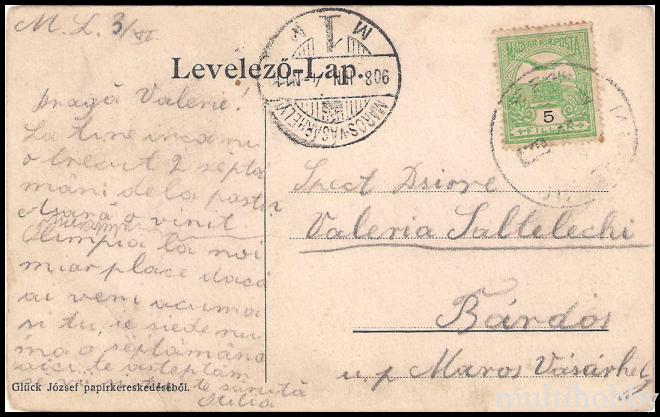 M. L. 3/VI
Levelező-Lap.
MAROS-VÁSÁRHELY
908 JUN. 4
MAGYAR KIR. POSTA
5
FILLÉR
Dragă Valerie!
La tine inca nu
o trecut 2 săptă
măni de la posta
Asară o vinit
Olimpia la noi
miar place dacă
ai veni acuma
si tu, ie siede nu
ma o săptămăna
aici te asteptăm
te sărută
Otilia
Spect Dsiore
Valeria Saltelechi
Bárdos
u. p. Maros Vásárhely
Glück József papirkereskedéséből.